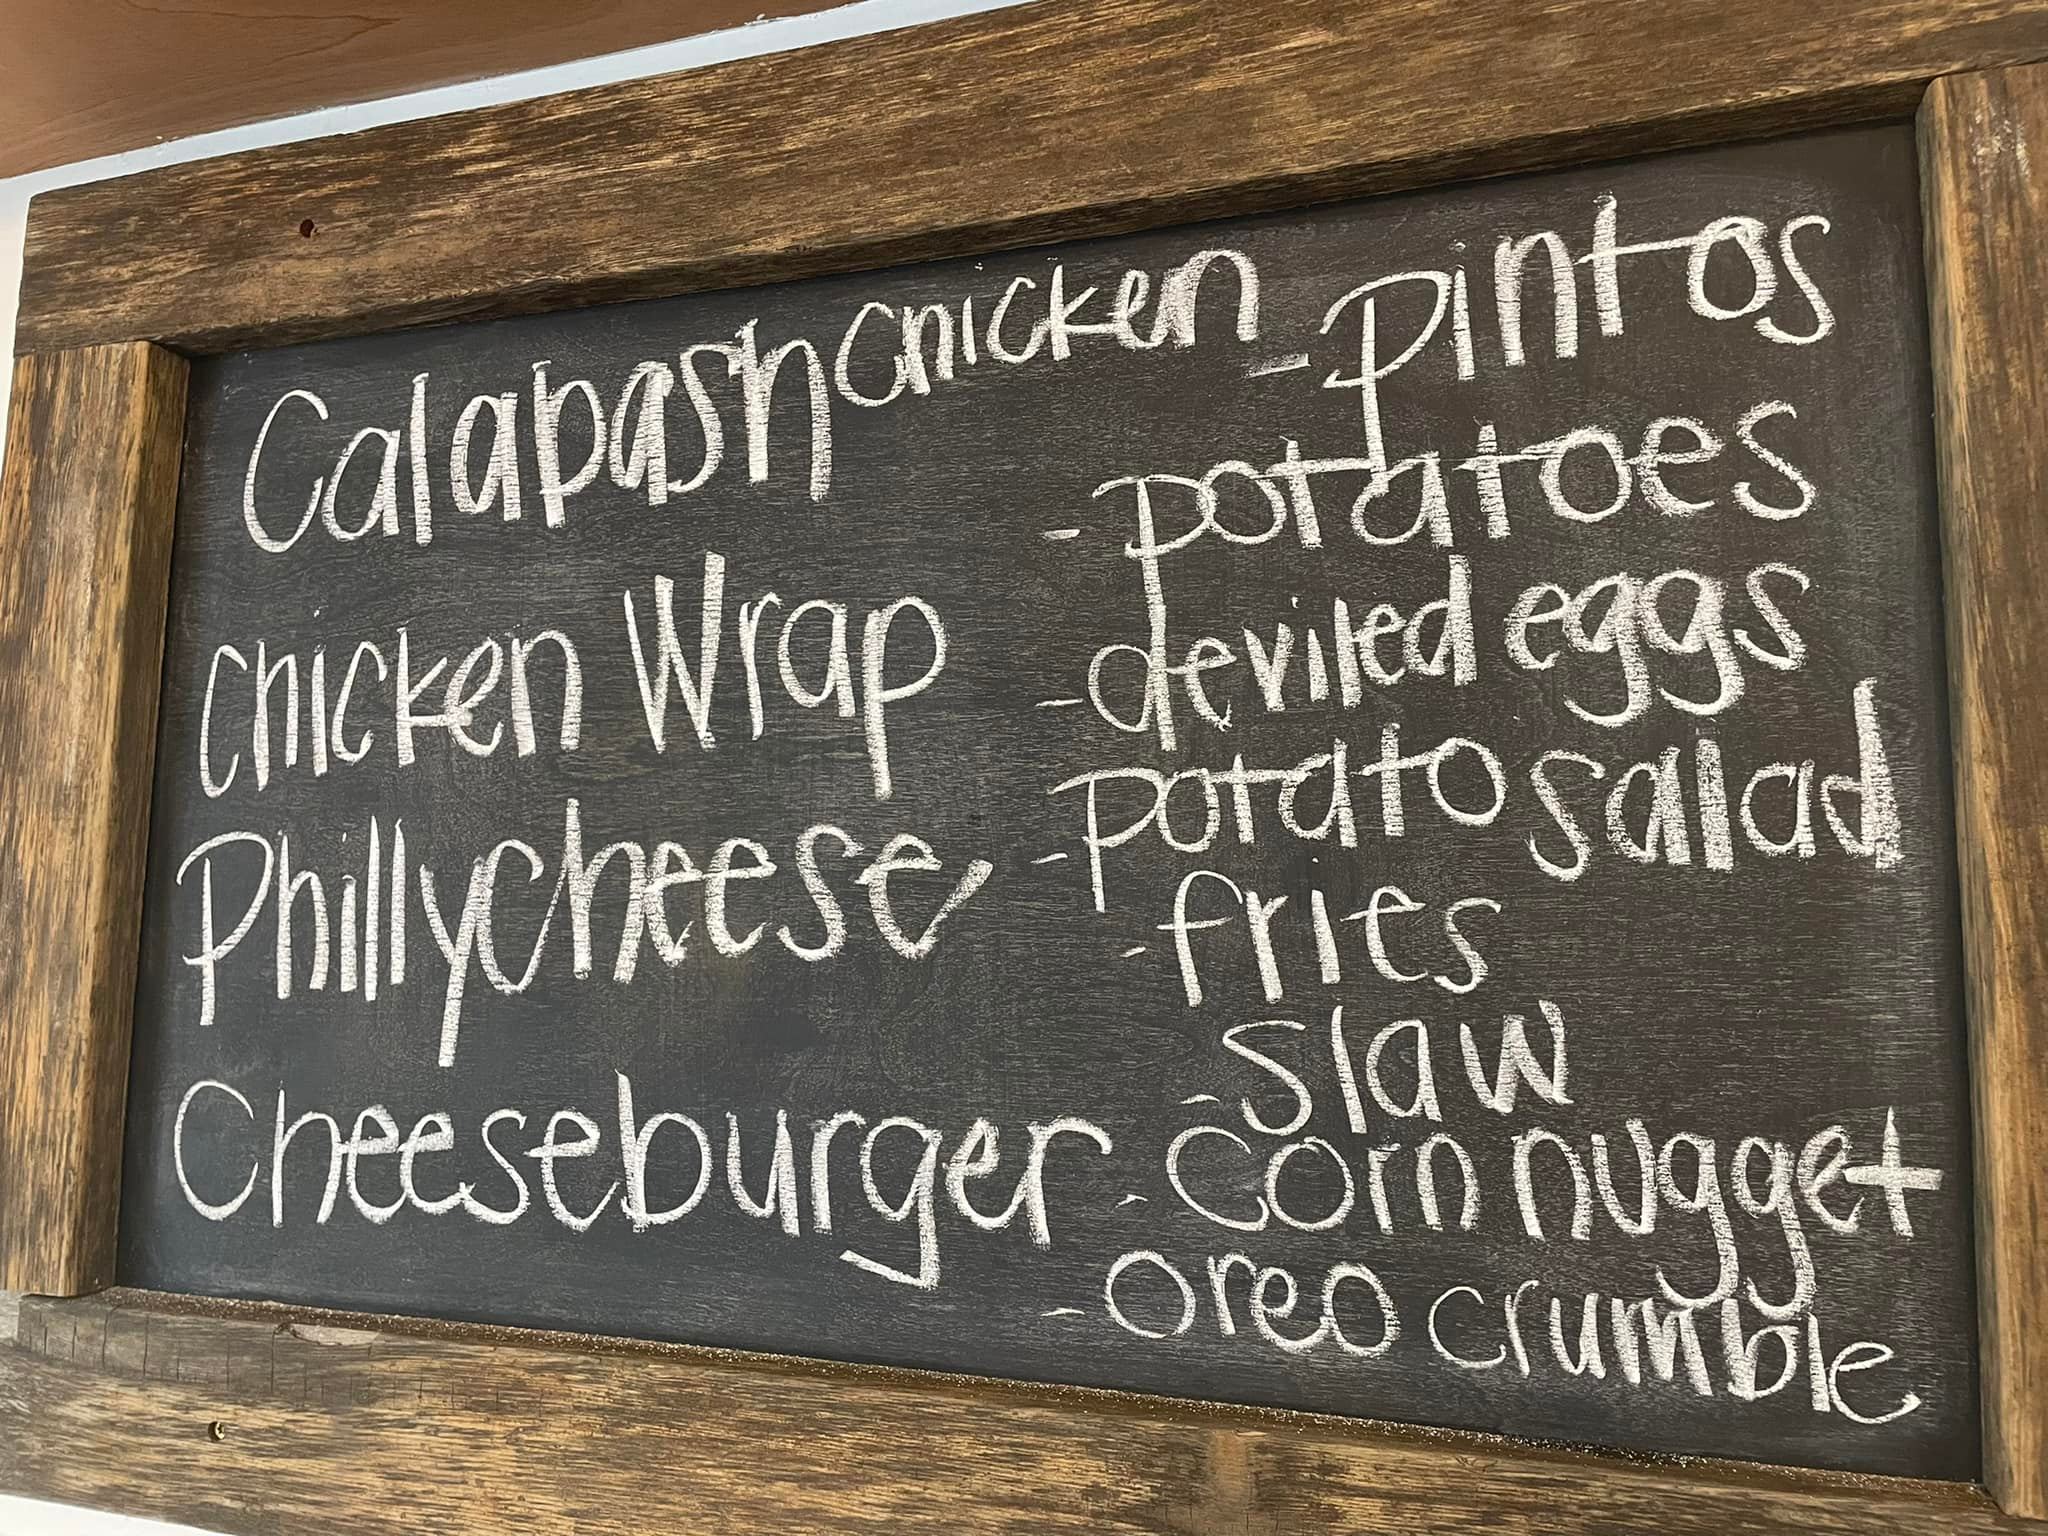 Calabash chicken
Chicken Wrap
Phillycheese
Cheeseburger
- Pintos
- potatoes
- deviled eggs
- potato salad
- fries
- slaw
- corn nugget
- oreo crumble